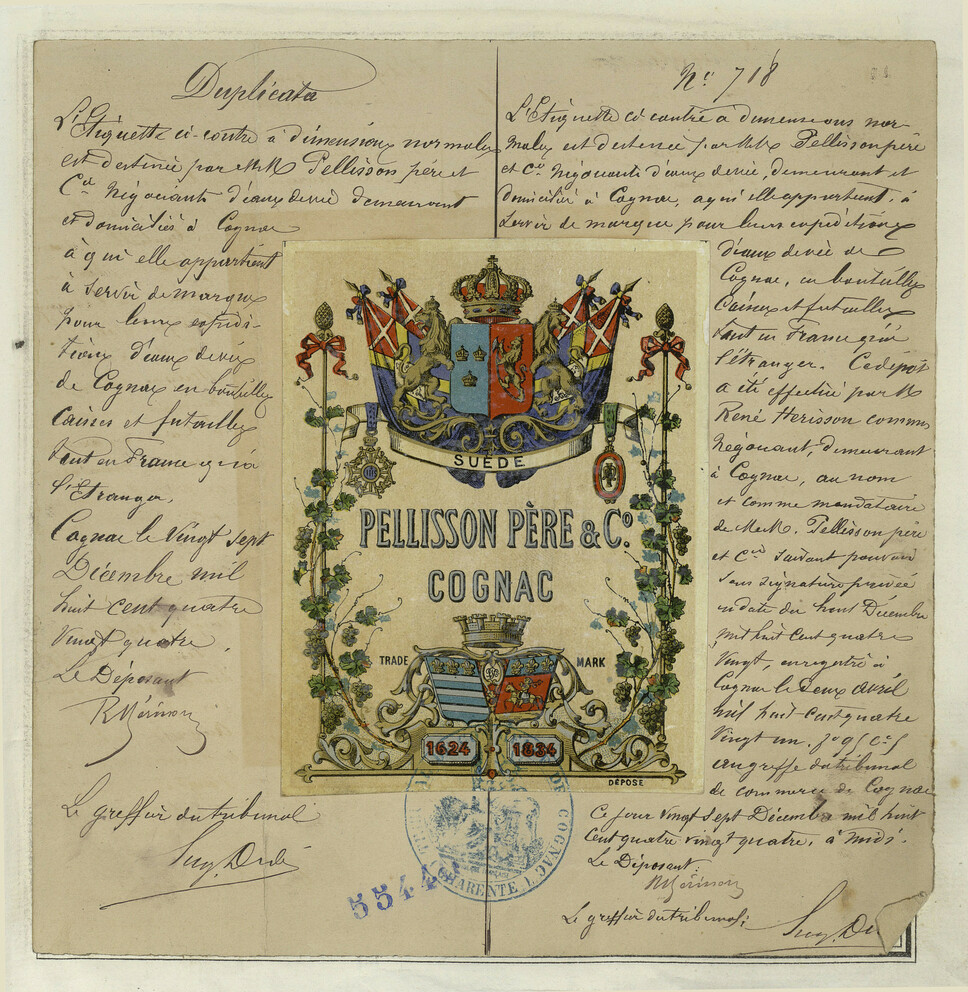 Duplicata
L'Etiquette ci-contre à dimensions normales
est destinée par MM Pellisson père et
Cie Négociants d'eaux de vie demeurant
et domiciliés à Cognac
à qui elle appartient
à servir de marque
pour leurs expédi-
tions d'eaux de vie
de Cognac en bouteilles
Caisses et futailles
tant en France qu'à
l'Etranger.
Cognac le Vingt sept
Décembre mil
huit cent quatre
Vingt quatre.
Le Déposant
R Hérisson
Le greffier du tribunal
No 718
L'Etiquette ci contre à dimensions nor-
males est destinée par MM. Pellisson père
et Cie Négociants d'eaux de vie, demeurant et
domiciliés à Cognac, à qui elle appartient, à
servir de marque pour leurs expéditions
d'eaux de vie de
Cognac, en bouteilles
Caisses et futailles
tant en France qu'à
l'étranger. Ce dépôt
a été effectué par M
René Hérisson commis
Négociant, demeurant
à Cognac, au nom
et comme mandataire
de M.M. Pellisson père
et Cie suivant pouvoir
sous signature privée
en date du huit Décembre
mil huit cent quatre
Vingt, enregistré à
Cognac le deux Avril
mil huit cent quatre
Vingt un.
au greffe du tribunal
de commerce de Cognac
Ce jour vingt sept Décembre mil huit
cent quatre vingt quatre, à midi.
Le Déposant:
R Hérisson
Le greffier du tribunal:
SUÈDE
PELLISSON PÈRE & Co.
COGNAC
TRADE MARK
1624 1834
DÉPOSÉ
DE COGNAC
CHARENTE
5544